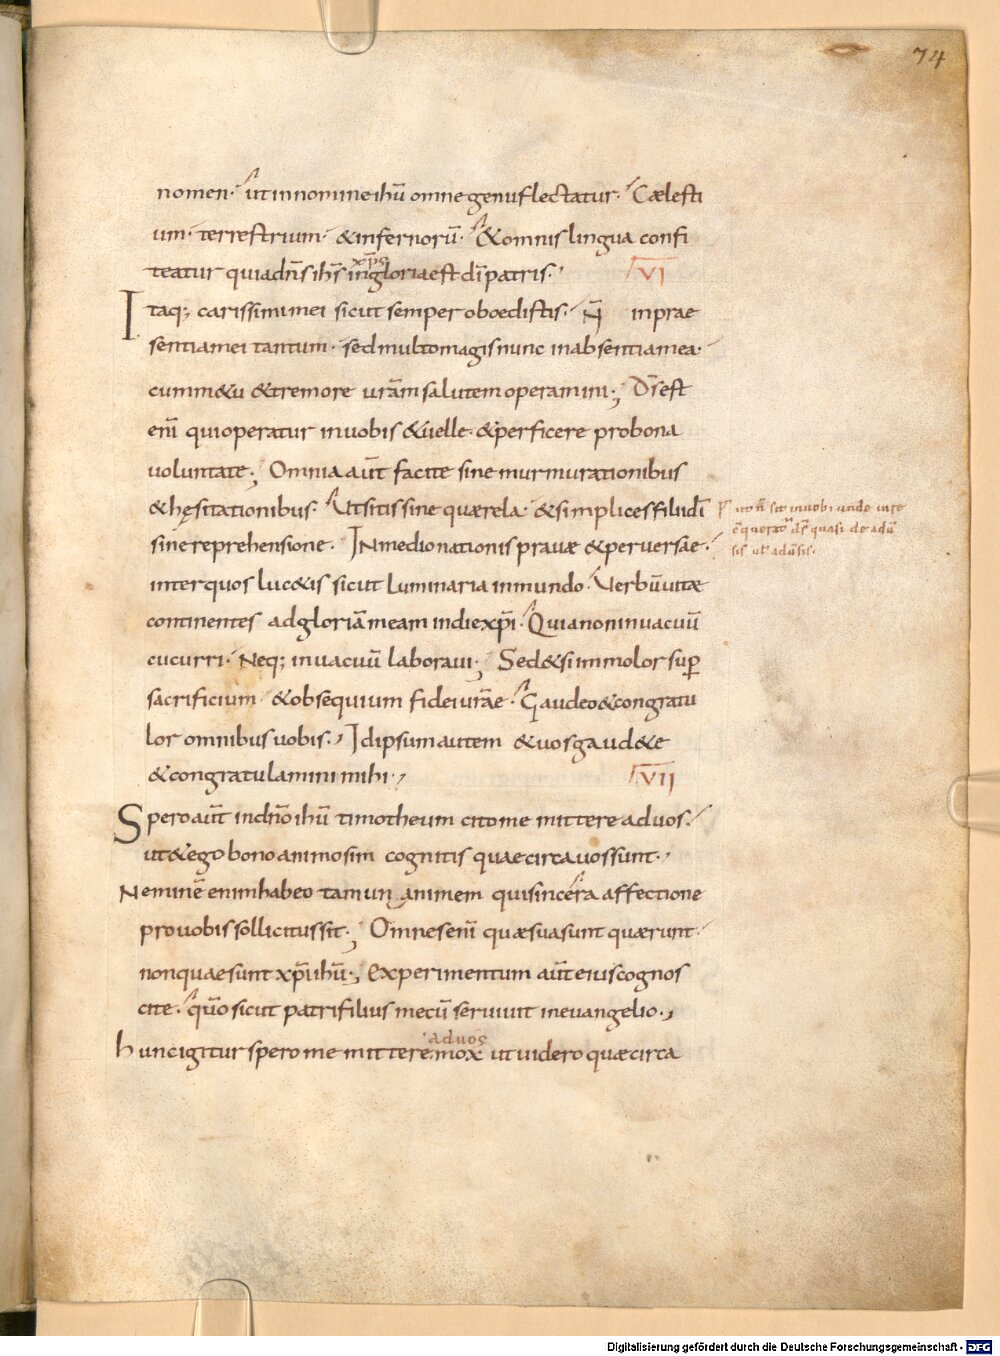 74
nomen· ut in nomine ihū omne genu flectatur· Cælesti
um· terrestrium· & infernorū· & omnis lingua confi
teatur quia dn̄s ih̄s xp̄s in gloria est dī patris· VI
Itaq; carissimi mei sicut semper oboedistis· N̄ in prae
sentia mei tantum· sed multo magis nunc in absentia mea·
cum m&u & tremore urām salutem operamini·; Ds̄ est
enī qui operatur in uobis & uelle· & perficere pro bona
uoluntate·; Omnia aūt facite sine murmurationibus
& hęsitationibus· Ut sitis sine quærela· & simplices filii dī
sine reprehensione· IN medio nationis prauæ & peruersae·
inter quos luc&is sicut Luminaria in mundo· Uerbū uitæ
continentes ad gloriā meam in die xp̄i· Quia non in uacuū
cucurri· Neq; in uacuū laboraui·; Sed & si immolor sup̄
sacrificium· & obsequium fidei urāe· Gaudeo & congratu
lor omnibus uobis·, Id ipsum autem & uos gaud&e
& congratulamini mihi·, VII
Spero aūt in dn̄o ihū timotheum cito me mittere ad uos·
ut & ego bono animo sim cognitis quae circa uos sunt·,
Neminē enim habeo tam unanimem qui sincera affectione
pro uobis sollicitus sit·; Omnes enī quæ sua sunt quærunt·
non quae sunt xp̄i ihū·; Experimentum aūt eius cognos
cite· qūo sicut patri filius mecū seruiuit in euangelio·,
ad uos
hunc igitur spero me mittere mox ut uidero quæ circa
Digitalisierung gefördert durch die Deutsche Forschungsgemeinschaft - DFG